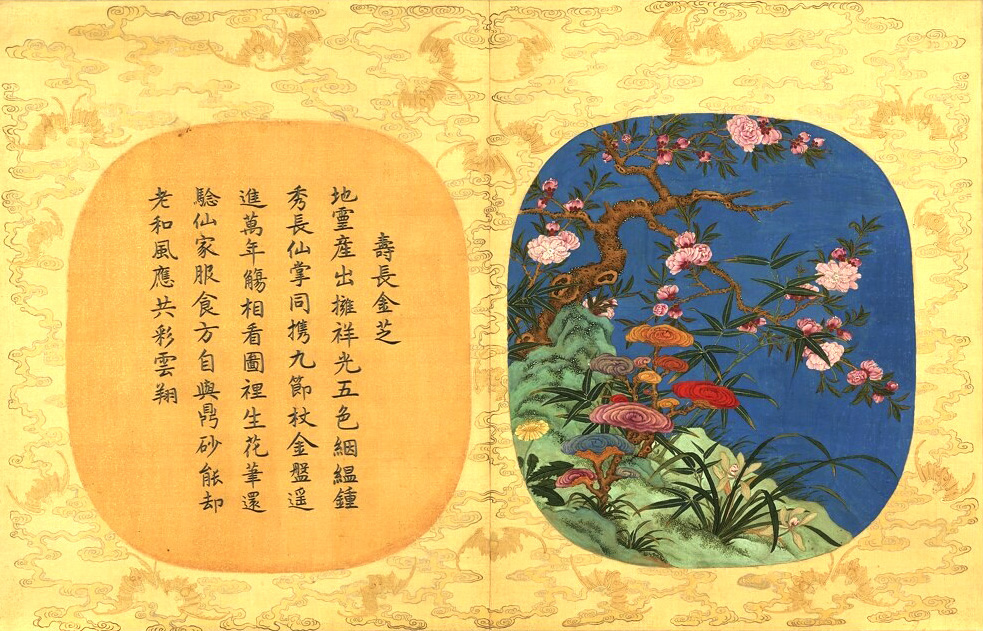 壽長金芝
地靈産出擁祥光五色絪縕鍾
秀長仙掌同携九節杖金盤遥
進萬年觴相看圖裡生花筆還
驗仙家服食方自與鼎砂能却
老和風應共彩雲翔